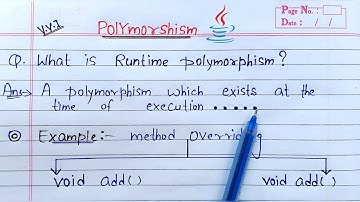 V.V.I
Polymorshism
Java
Page No. :
Date : / /
Q. What is Runtime polymorphism?
Ans→ A polymorphism which exists at the
time of execution .....
Example:- method Overriding
void add() void add()